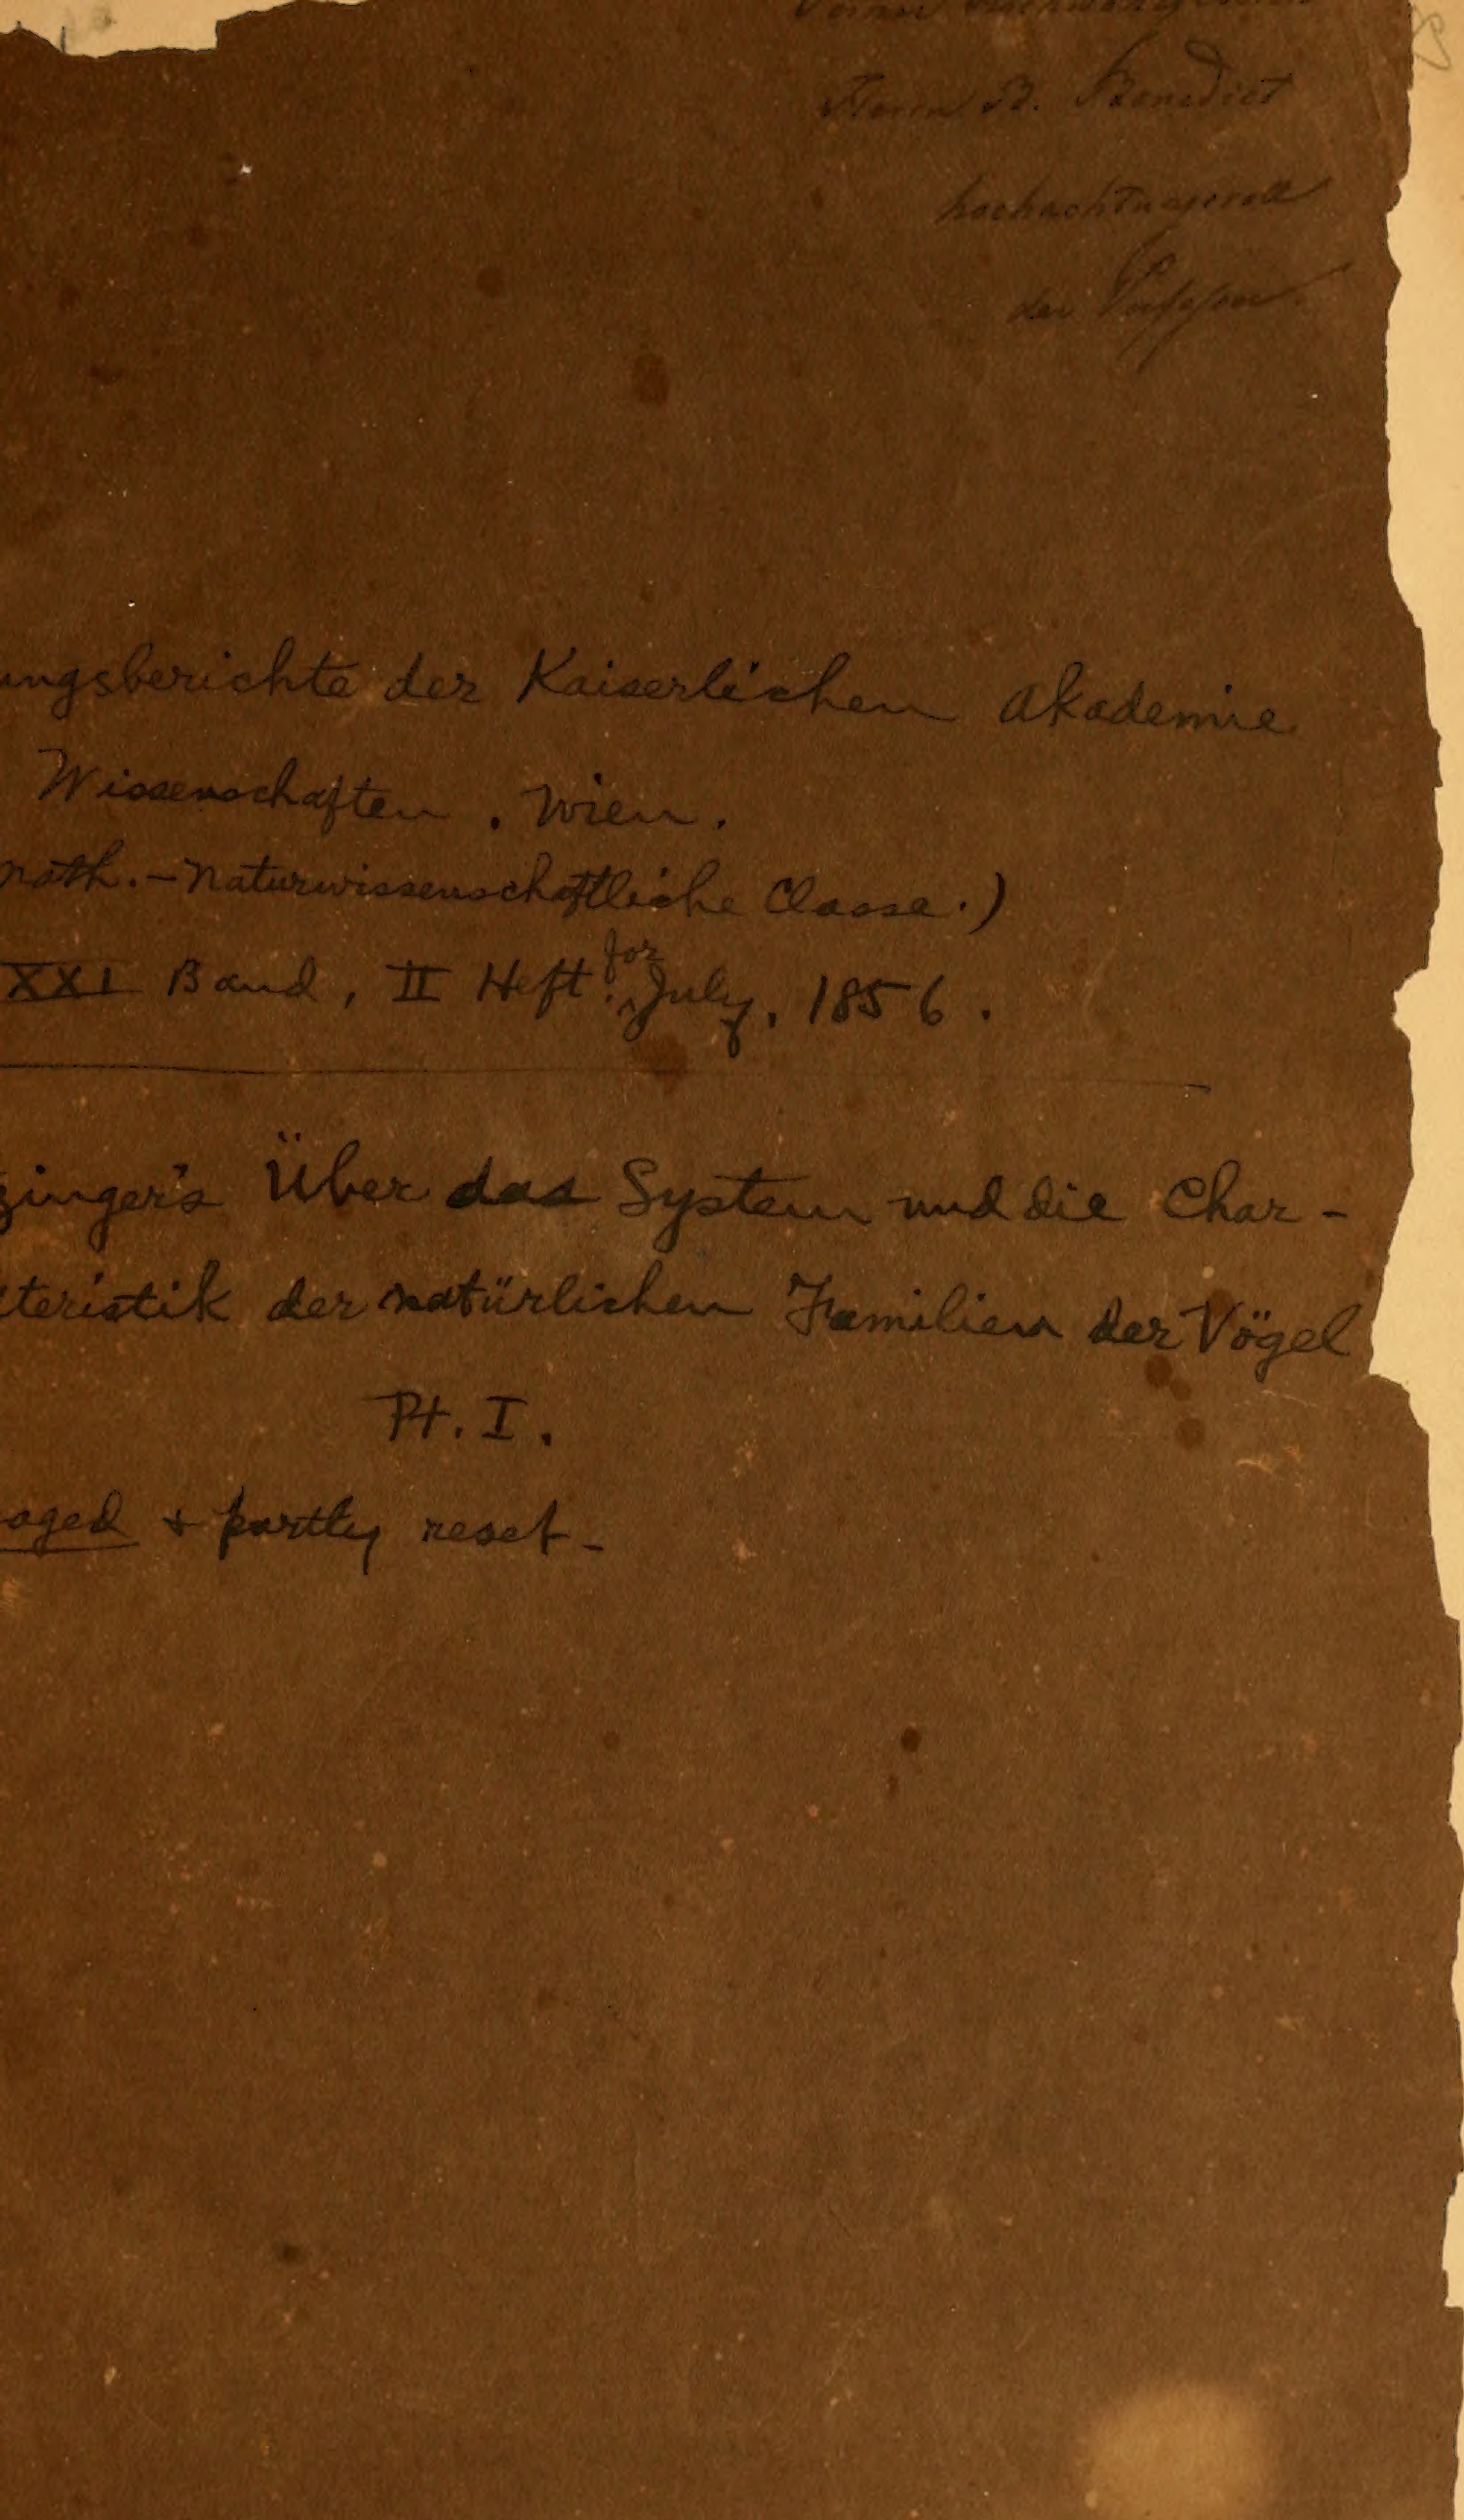 Herrn B. Benedict
hochachtungsvoll
der
ungsberichte der Kaiserlichen Akademie
Wissenschaften. Wien.
math.-Naturwissenschaftliche Classe.)
XXI Band, II Heft. for July, 1856.
zinger's Über das System und die Char-
kteristik der natürlichen Familien der Vögel
Pt. I.
aged + partly reset-